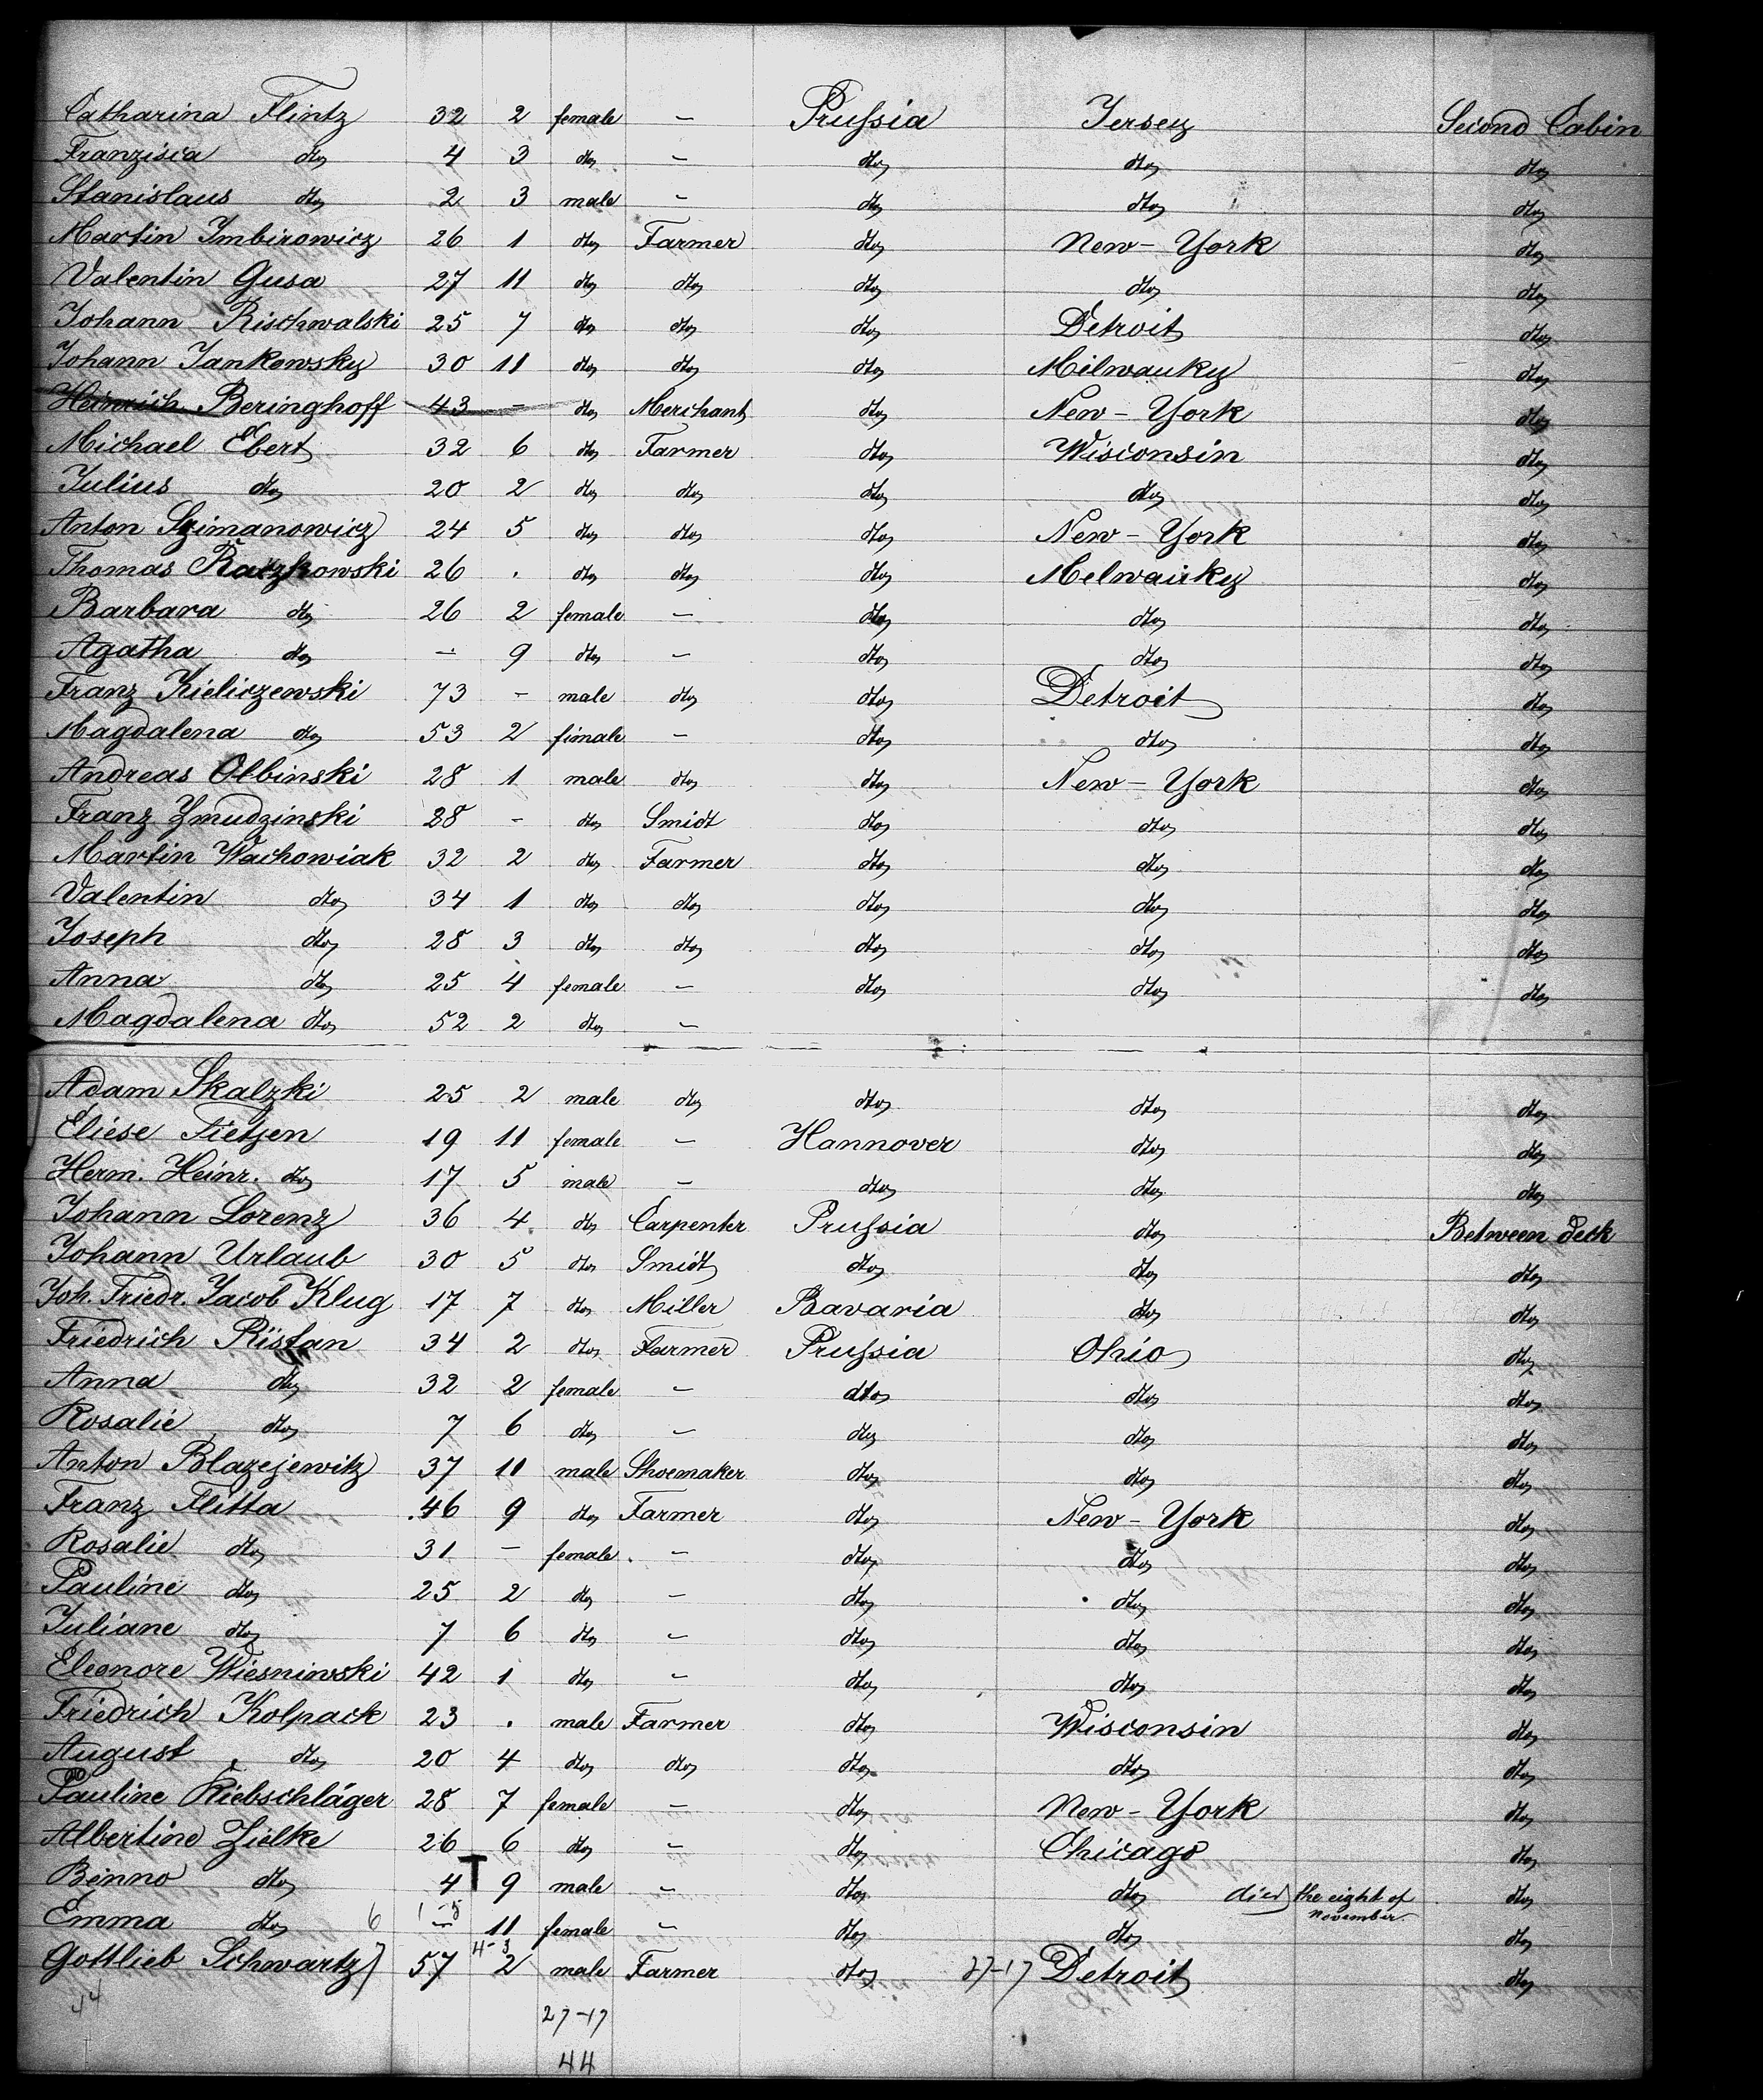 Catharina Flintz 32 2 female – Prussia Jersey Second Cabin
Franzisca dto 4 3 dto – dto dto dto
Stanislaus dto 2 3 male – dto dto dto
Martin Imbirowicz 26 1 dto Farmer dto New-York dto
Valentin Gusa 27 11 dto dto dto dto dto
Johann Rischwalski 25 7 dto dto dto Detroit dto
Johann Jankowsky 30 11 dto dto dto Milwauky dto
Heinrich Beringhoff 43 – dto Merchant dto New-York dto
Michael Ebert 32 6 dto Farmer dto Wisconsin dto
Julius dto 20 2 dto dto dto dto dto
Anton Szimanowicz 24 5 dto dto dto New-York dto
Thomas Raczkowski 26 . dto dto dto Melwauky dto
Barbara dto 26 2 female – dto dto dto
Agatha dto – 9 dto – dto dto dto
Franz Kieliczewski 73 – male dto dto Detroit dto
Magdalena dto 53 2 fimale – dto dto dto
Andreas Olbinski 28 1 male dto dto New-York dto
Franz Zmudzinski 28 – dto Smidt dto dto dto
Martin Wachowiak 32 2 dto Farmer dto dto dto
Valentin dto 34 1 dto dto dto dto dto
Joseph dto 28 3 dto dto dto dto dto
Anna dto 25 4 female – dto dto dto
Magdalena dto 52 2 dto –
Adam Skalzki 25 2 male dto dto dto dto
Eliese Tietjen 19 11 female – Hannover dto dto
Herm. Heinr. dto 17 5 male – dto dto dto
Johann Lorenz 36 4 dto Carpenter Prussia dto Between deck
Johann Urlaub 30 5 dto Smidt dto dto dto
Joh. Friedr. Jacob Klug 17 7 dto Miller Bavaria dto dto
Friedrich Ristan 34 2 dto Farmer Prussia Ohio dto
Anna dto 32 2 female – dto dto dto
Rosalie dto 7 6 dto – dto dto dto
Anton Blazejewitz 37 11 male Shoemaker dto dto dto
Franz Flitta 46 9 dto Farmer dto New-York dto
Rosalie dto 31 – female – dto dto dto
Pauline dto 25 2 dto – dto dto dto
Juliane dto 7 6 dto – dto dto dto
Eleonore Wiesniwski 42 1 dto – dto dto dto
Friedrich Kolpack 23 . male Farmer dto Wisconsin dto
August dto 20 4 dto dto dto dto dto
Pauline Riebschläger 28 7 female – dto New-York dto
Albertine Zielke 26 6 dto – dto Chicago dto
Benno dto 4 T 9 male – dto dto died the eight of november. dto
Emma dto 6 1-5 – 11 female – dto dto dto
Gottlieb Schwartz 57 4-3 2 male Farmer dto 27-17 Detroit dto
44 27-17
44